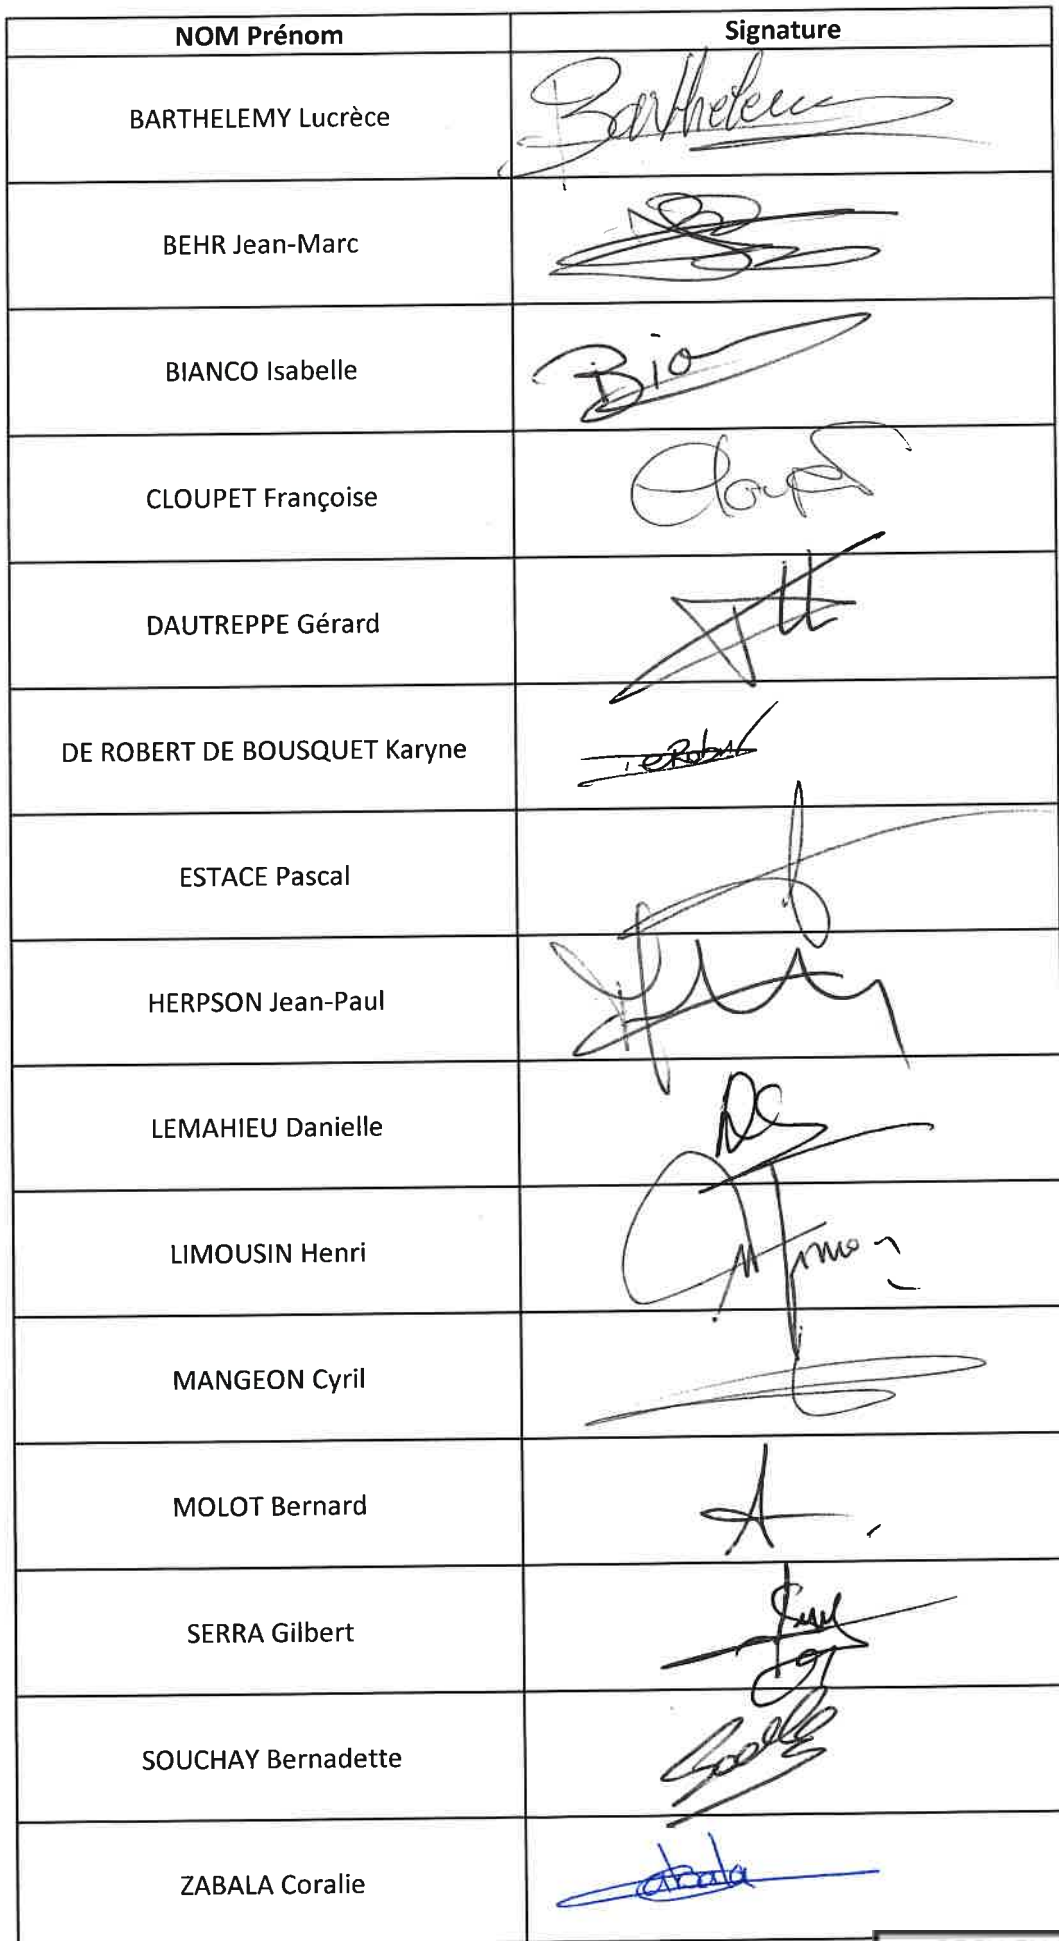 NOM Prénom Signature
BARTHELEMY Lucrèce Barthelemy
BEHR Jean-Marc
BIANCO Isabelle
CLOUPET Françoise Cloupet
DAUTREPPE Gérard
DE ROBERT DE BOUSQUET Karyne
ESTACE Pascal
HERPSON Jean-Paul
LEMAHIEU Danielle
LIMOUSIN Henri
MANGEON Cyril
MOLOT Bernard
SERRA Gilbert
SOUCHAY Bernadette
ZABALA Coralie